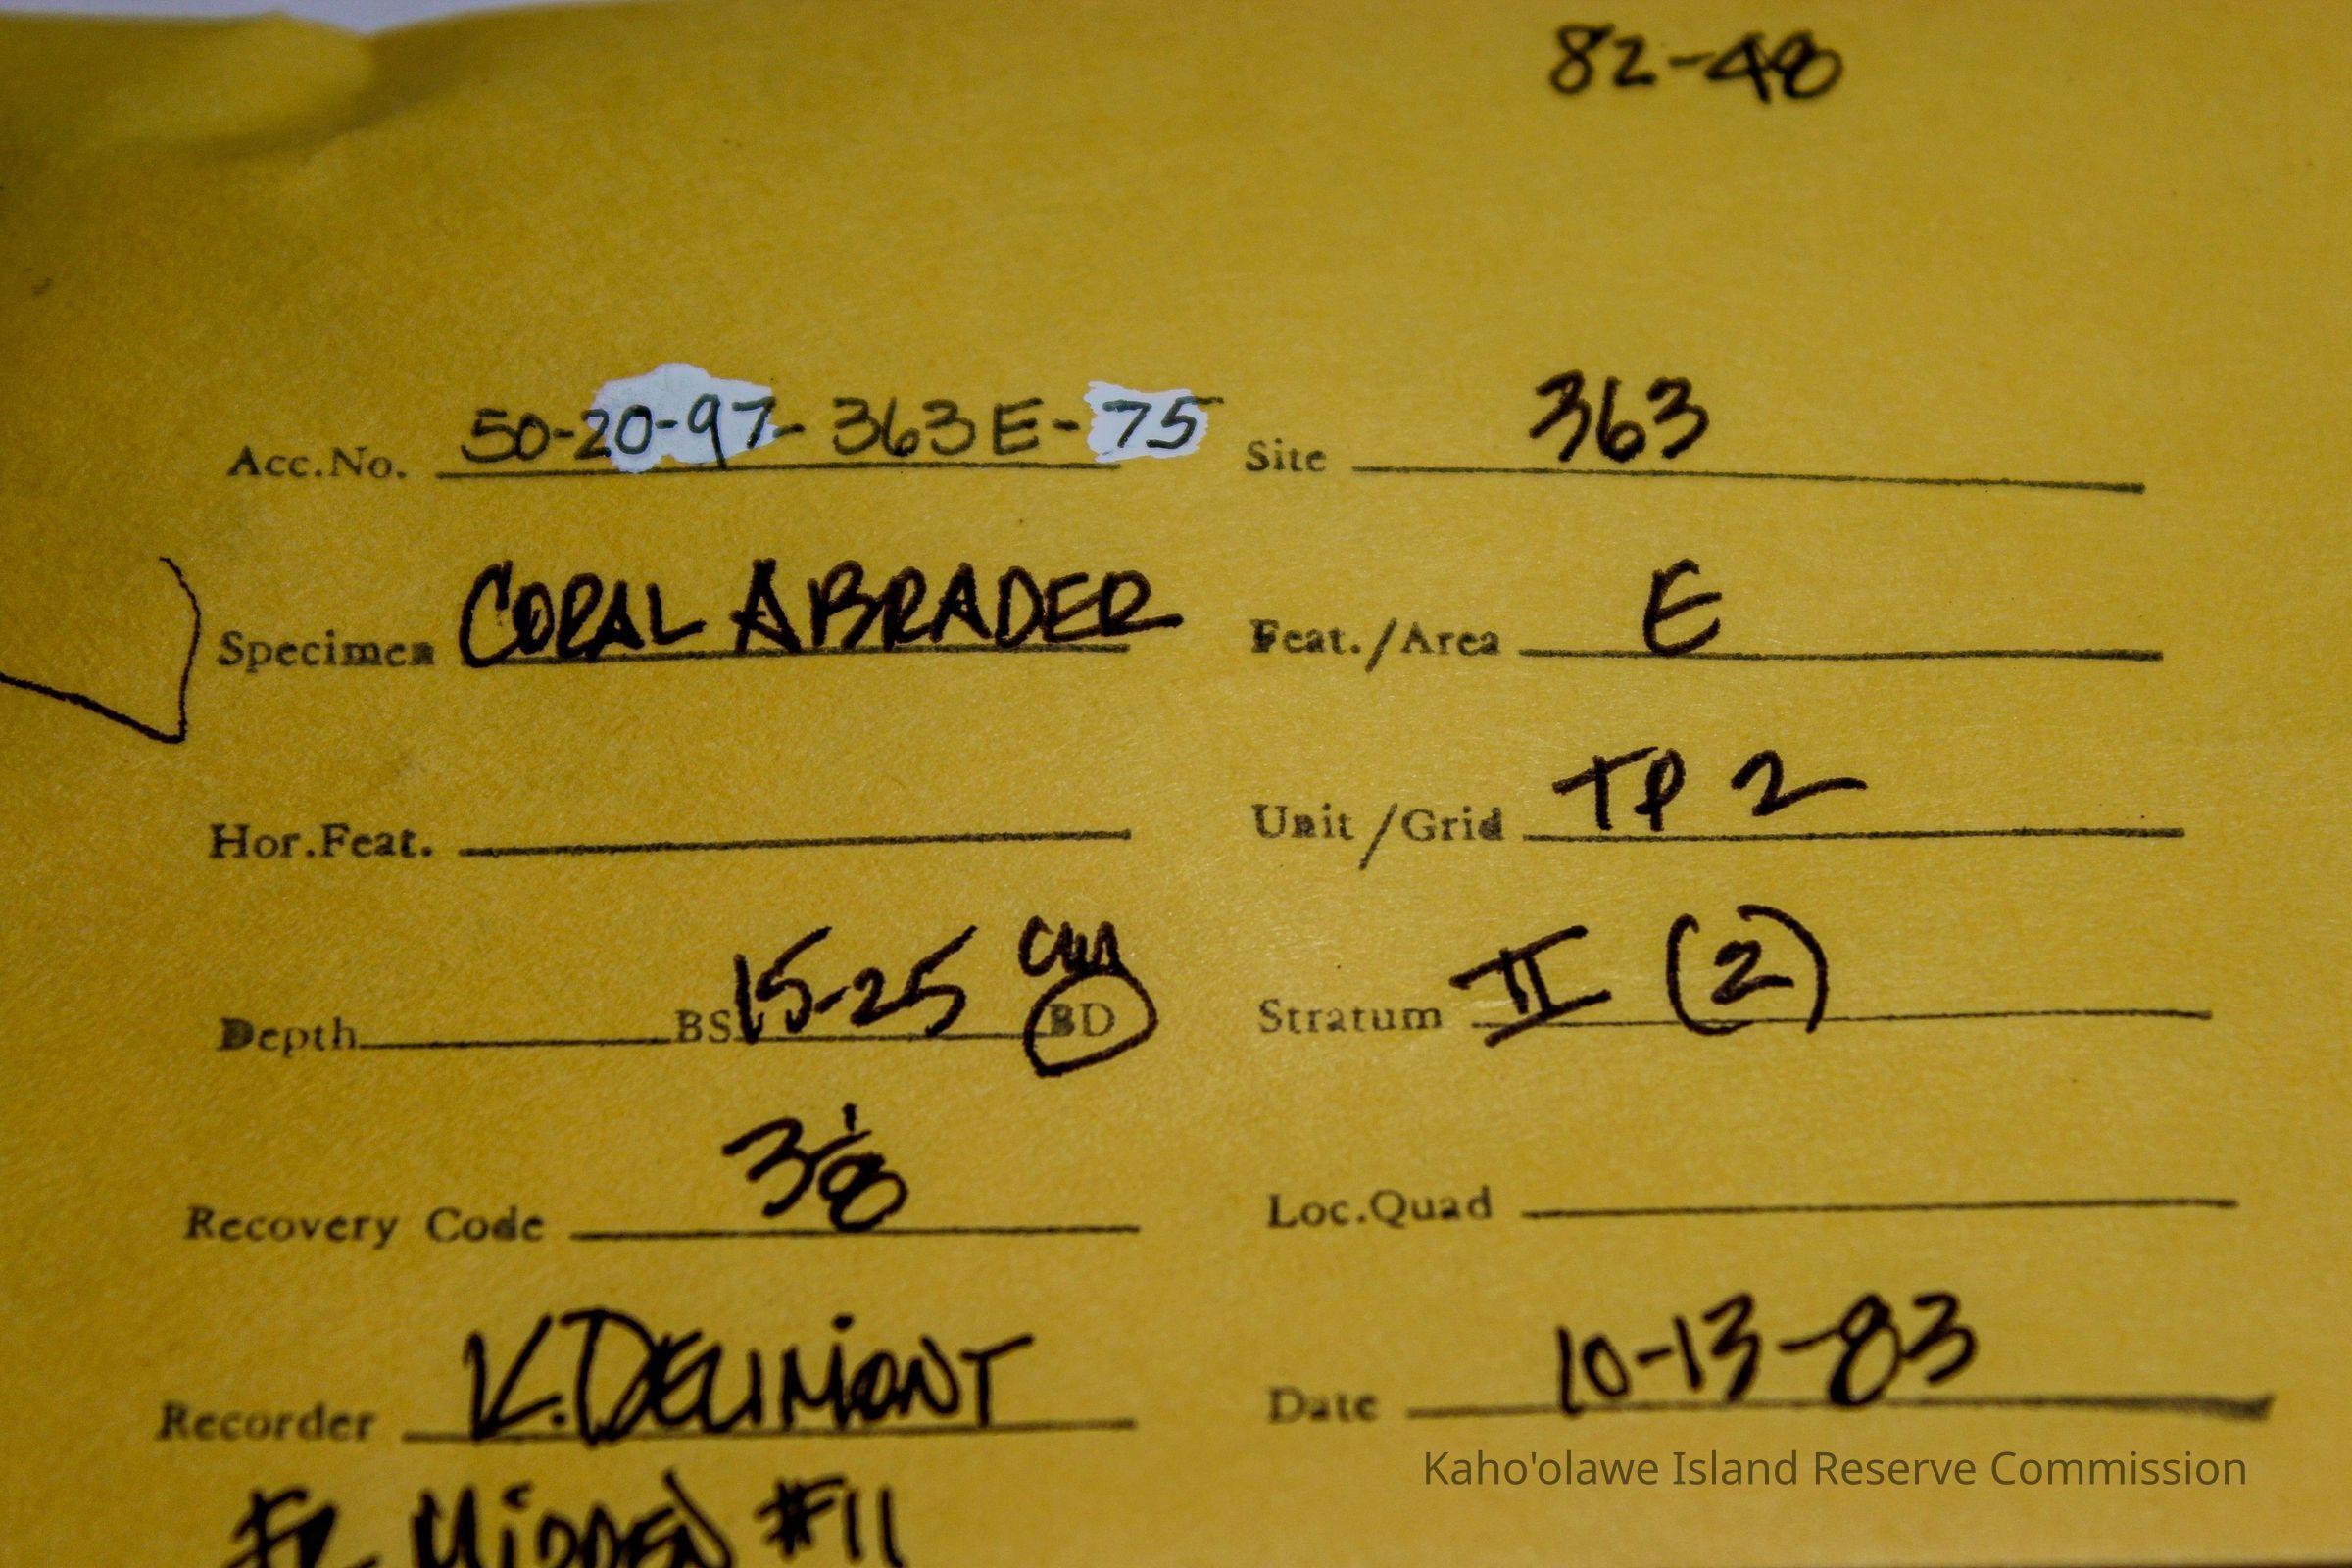 82-48
Acc.No. 50-20-97-363E-75 Site 363
Specimen CORAL ABRADER Feat./Area E
Hor.Feat. Unit/Grid TP 2
Depth BS 15-25 cm BD Stratum II (2)
Recovery Code 3 1/8 Loc.Quad
Recorder K. DELIMONT Date 10-13-83
Kaho'olawe Island Reserve Commission
MIDDEN #11